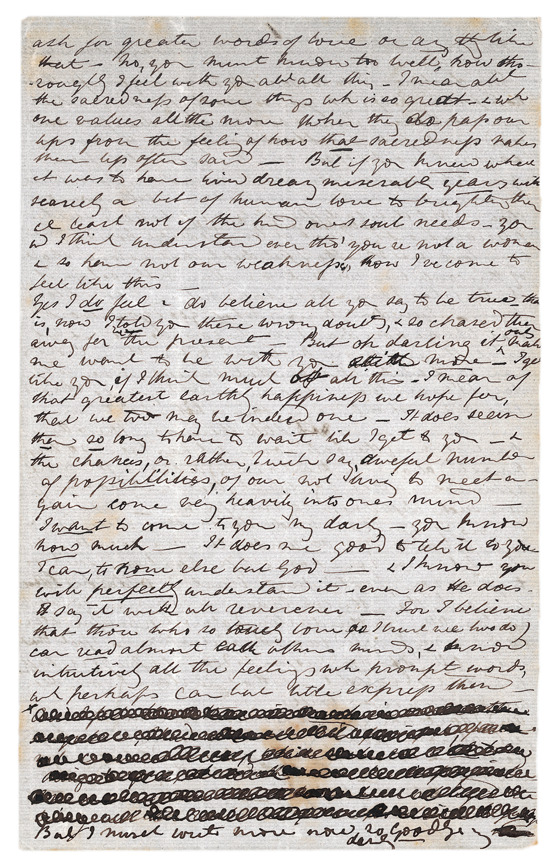 ask for greater words of love or any like
that - No, you must know too well, how tho-
roughly I feel with you abt all this - I mean abt
the sacredness of some things wh is so great - & wh
one values all the more when they do pass our
lips from the feeling of how that sacredness makes
them up after said - But if you knew what
it was to have lived dreary miserable years with
scarcely a bit of human love to brighten them
at least not of the kind ones soul needs - you
wd I think understand even tho' you're not a woman
& so have not our weakness, how I've come to
feel like this -
Yes I do feel & do believe all you say to be true, that
is, now I've told you these wrong doubts, & so chased them
away for the present - But oh darling it only makes
me want to be with you more - I get
like you if I think much of all this - I mean of
that greatest earthly happiness we hope for,
that we two may be indeed one - It does seem
then so long to have to wait till I get to you - &
the chances, or rather, I will say, aweful number
of possibilities, of our not living to meet a-
gain come very heavily into ones mind -
I want to come to you my darlg - you know
how much - It does me good to tell it to you
I can, to none else but God - & I know you
will perfectly understand it - even as He does.
to say it with all reverence - For I believe
that those who so truly love (as I trust we two do)
can read almost each others minds, & know
intuitively all the feelings wh prompt words,
wh perhaps can but little express them -
But I must write more now, so Good bye
darlg -